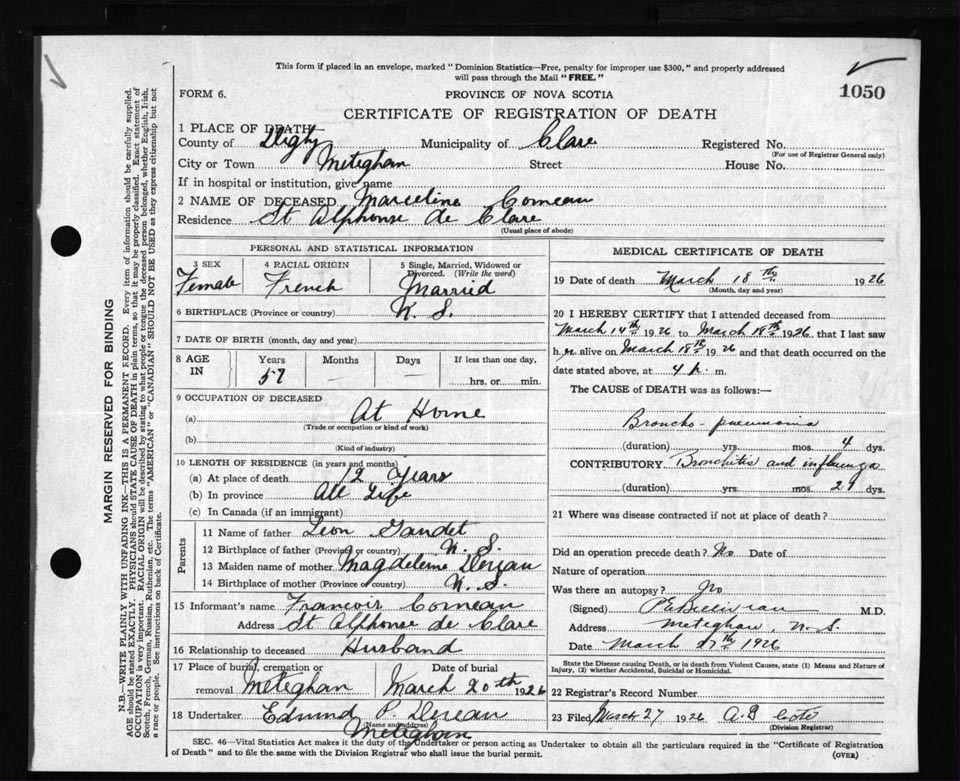 This form if placed in an envelope, marked "Dominion Statistics—Free, penalty for improper use $300," and properly addressed
will pass through the Mail "FREE."
1050
FORM 6.
PROVINCE OF NOVA SCOTIA
CERTIFICATE OF REGISTRATION OF DEATH
1 PLACE OF DEATH—
County of Digby Municipality of Clare Registered No.
(For use of Registrar General only)
City or Town Meteghan Street House No.
If in hospital or institution, give name
2 NAME OF DECEASED Marceline Comeau
Residence St Alphonse de Clare
(Usual place of abode)
PERSONAL AND STATISTICAL INFORMATION
3 SEX 4 RACIAL ORIGIN 5 Single, Married, Widowed or
Divorced. (Write the word)
Female French Married
6 BIRTHPLACE (Province or country) N. S.
7 DATE OF BIRTH (month, day and year)
8 AGE IN Years Months Days If less than one day,
57 — — hrs. or min.
9 OCCUPATION OF DECEASED
(a) At Home
(Trade or occupation or kind of work)
(b)
(Kind of industry)
10 LENGTH OF RESIDENCE (in years and months)
(a) At place of death 12 Years
(b) In province All Life
(c) In Canada (if an immigrant)
Parents
11 Name of father Leon Gaudet
12 Birthplace of father (Province or country) N. S.
13 Maiden name of mother Magdeleine
14 Birthplace of mother (Province or country) N. S.
15 Informant's name Francois Comeau
Address St Alphonse de Clare
16 Relationship to deceased Husband
17 Place of burial, cremation or Date of burial
removal Meteghan March 20th 1926
18 Undertaker Edmund P.
(Name and address)
Meteghan
MEDICAL CERTIFICATE OF DEATH
19 Date of death March 18th 1926
(Month, day and year)
20 I HEREBY CERTIFY that I attended deceased from
March 14th 1926 to March 18th 1926, that I last saw
h er alive on March 18th 1926 and that death occurred on the
date stated above, at 4 p. m.
The CAUSE of DEATH was as follows:—
Broncho-pneumonia
(duration) yrs. mos. 4 dys.
CONTRIBUTORY Bronchitis and influenza
(duration) yrs. mos. 21 dys.
21 Where was disease contracted if not at place of death?
Did an operation precede death? No Date of
Nature of operation
Was there an autopsy? No
(Signed) M.D.
Address Meteghan, N. S.
Date March 27th 1926
State the Disease causing Death, or in death from Violent Causes, state (1) Means and Nature of
Injury, (2) whether Accidental, Suicidual or Homicidal.
22 Registrar's Record Number
23 Filed March 27 1926 A. B
(Division Registrar)
SEC. 46—Vital Statistics Act makes it the duty of the Undertaker or person acting as Undertaker to obtain all the particulars required in the "Certificate of Registration
of Death" and to file the same with the Division Registrar who shall issue the burial permit.
(OVER)
MARGIN RESERVED FOR BINDING
N.B.—WRITE PLAINLY WITH UNFADING INK—THIS IS A PERMANENT RECORD. Every item of information should be carefully supplied.
AGE should be stated EXACTLY. PHYSICIANS should STATE CAUSE OF DEATH in plain terms, so that it may be properly classified. Exact statement of
OCCUPATION is very important. RACIAL ORIGIN will be described by stating to what people or tongue the deceased person belonged, whether English, Irish,
Scotch, French, German, Russian, Ruthenian, etc. The terms "AMERICAN" or "CANADIAN" SHOULD NOT BE USED as they express citizenship but not
a race or people. See instructions on back of Certificate.